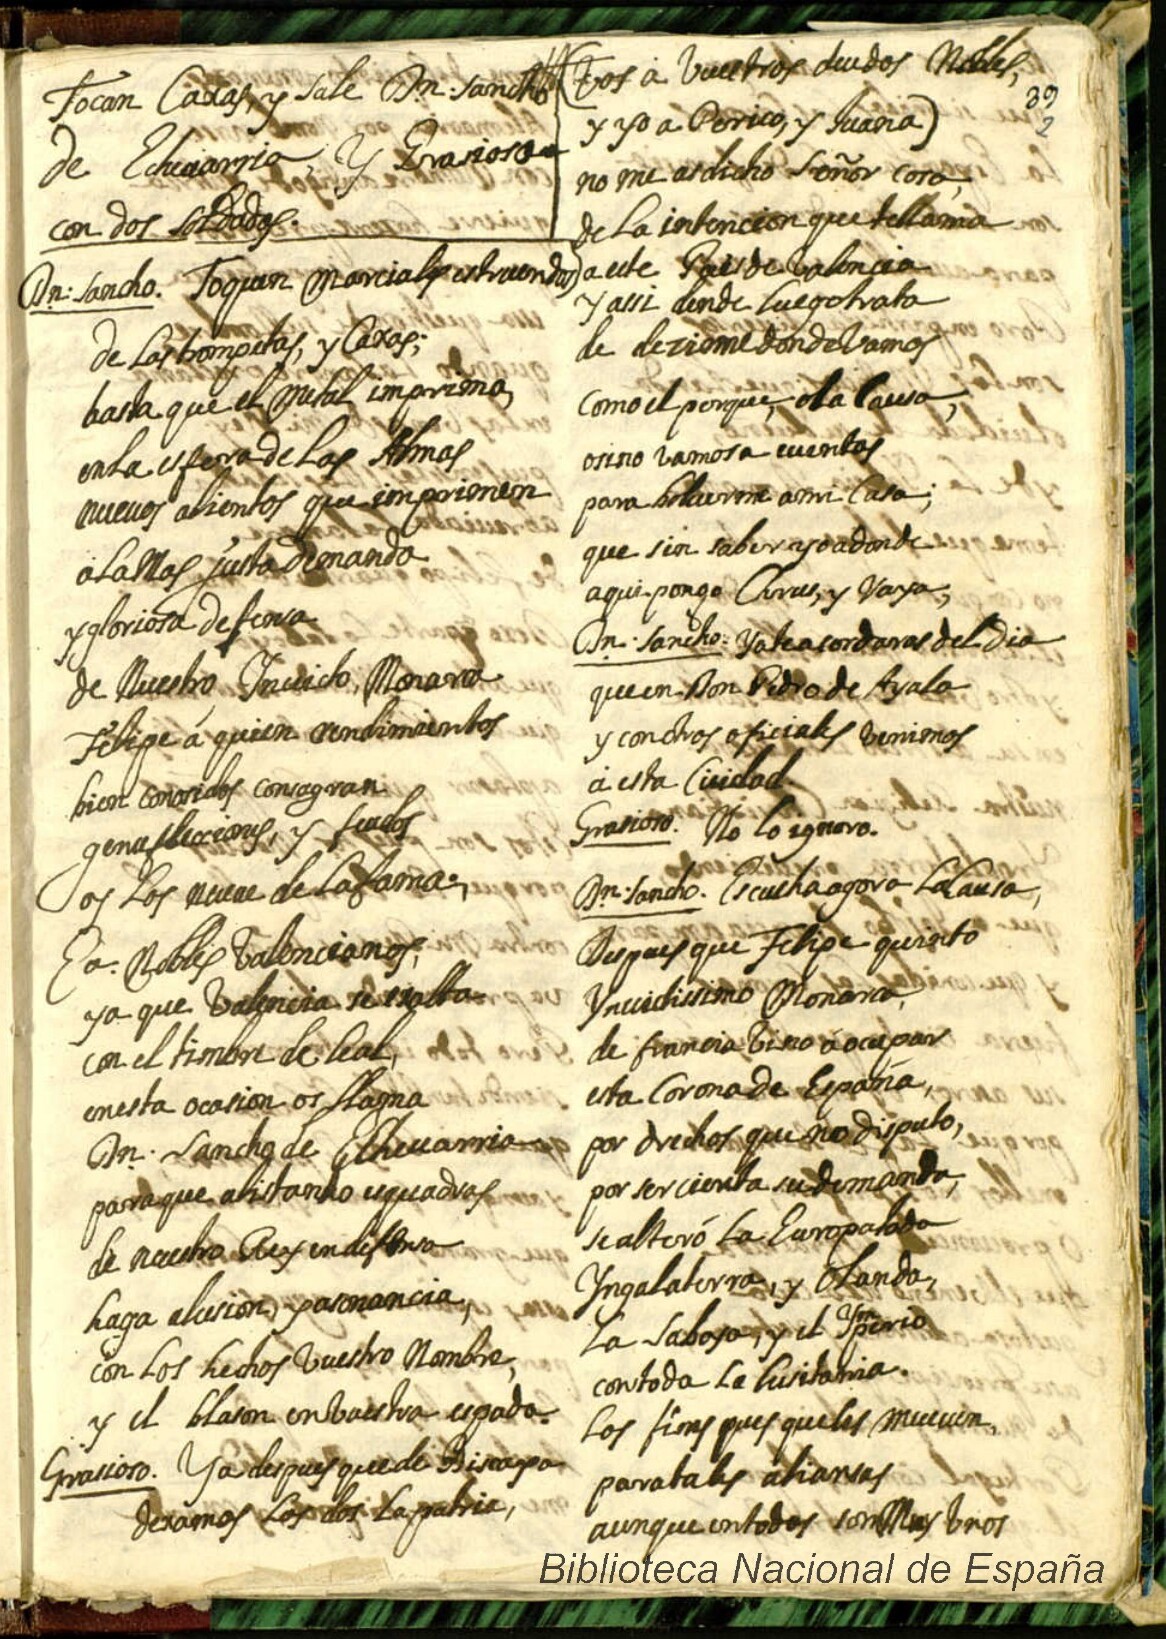 Tocan Caxas, y sale Dn. Sancho
de Echevarria, y Grasioso
con dos soldados.
Dn. Sancho. Toquen Marciales estruendos
de las trompetas, y Caxas;
hasta que el Metal imprima,
en la esfera de las Almas
nuevos alientos que imprimen
a la Mas justa Demanda
y gloriosa defensa
de Nuestro Invicto, Monarca
Felipe á quien rendimientos
bien conosidos consagran
genuflecciones, y feudos
os los nueve de la fama;
Ea. Nobles Valencianos;
ya que Valencia se exalta
con el timbre de Leal,
en esta ocasion os llama
Dn. Sancho de Echevarria
para que alistando esquadras
de nuestro Rey en defensa
haga alusion, y asonancia,
con los hechos vuestro Nombre,
y el blason en vuestra espada.
Grasioso. Ya despues que de Biscaya
dexamos los dos la patria,
(Vos a vuestros deudos Nobles,
y yo a Perico, y Juana)
no me as dicho Señor cosa,
de la intencion que te llama
a este Pais de Valencia
y assi dende luego trata
de dezirme donde vamos
como el porque, o la Causa,
o sino vamos a cuentas
para bolverme a mi Casa;
que sin saber yo adonde
aqui pongo Cirus, y Vaya;
Dn. Sancho. Ya te acordaras del Dia
que en Don Pedro de Ayala
y con otros oficiales venimos
á esta Ciudad.
Grasioso. No lo ignoro.
Dn. Sancho. Escucha agora la Causa,
Despues que Felipe quinto
Ynvictissimo Monarca,
de francia Vino á ocupar
esta Corona de España,
por drechos que no disputo,
por ser cierta su demanda,
se alteró la Europa toda
Yngalaterra, y Olanda,
La Saboya, y el Ymperio
con toda la Lusitania.
Los fines pues que les mueven,
para tales aliansas
aunque en todos son Mas Unos
39
2
Biblioteca Nacional de España